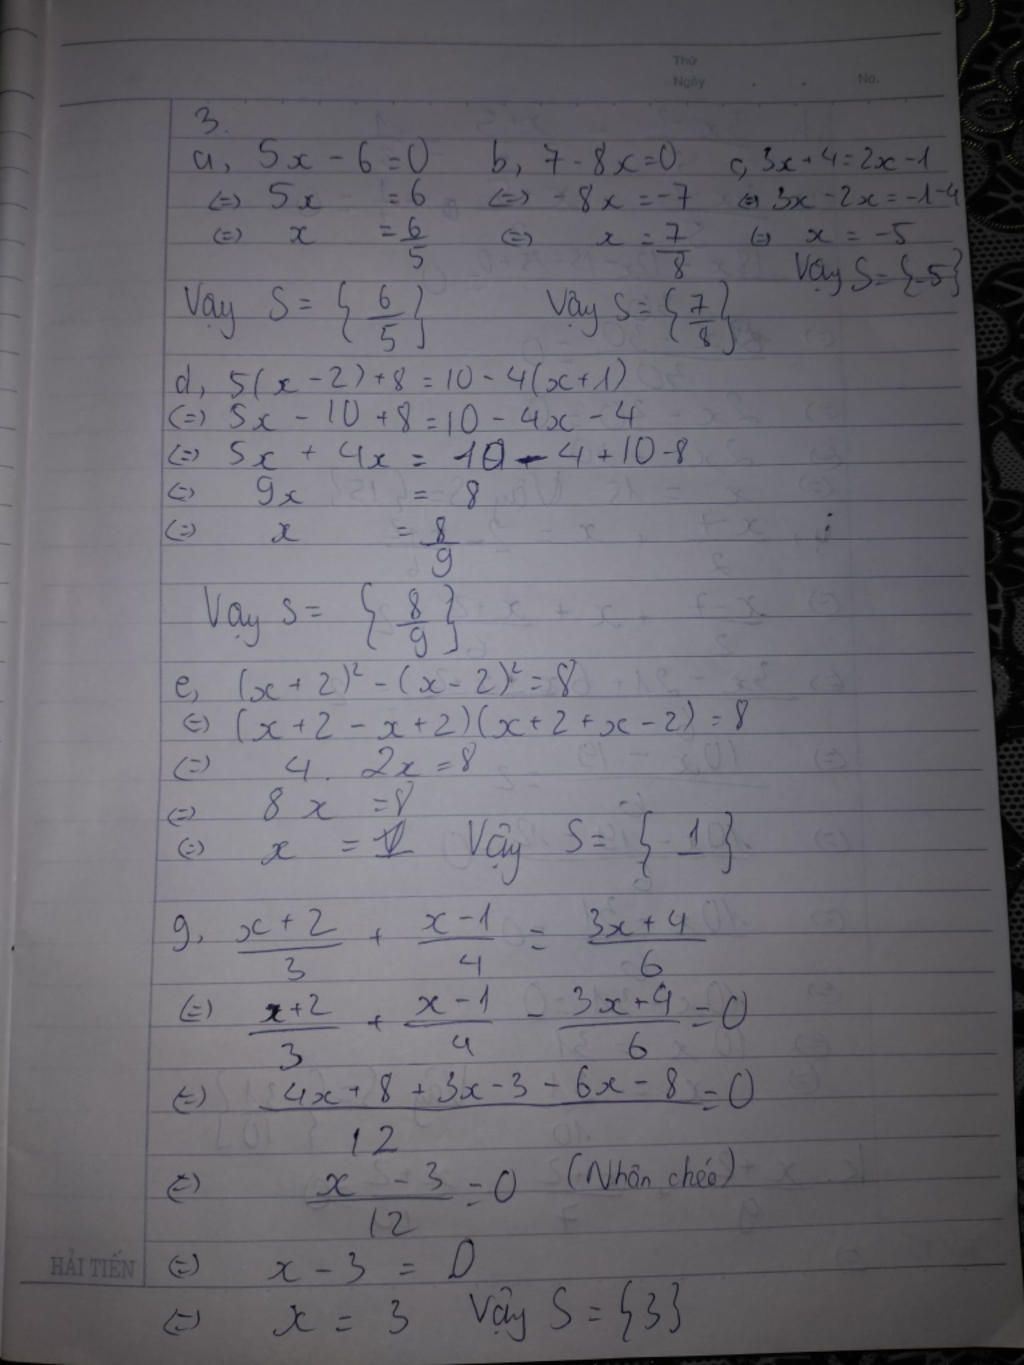 Thứ
Ngày . . No.
3.
a, 5x - 6 = 0 b, 7 - 8x = 0 c, 3x + 4 = 2x - 1
(=) 5x = 6 (=) - 8x = -7 (=) 3x - 2x = -1 - 4
(=) x = 6/5 (=) x = 7/8 (=) x = -5
Vậy S = {-5}
Vậy S = {6/5} Vậy S = {7/8}
d, 5(x - 2) + 8 = 10 - 4(x + 1)
(=) 5x - 10 + 8 = 10 - 4x - 4
(=) 5x + 4x = 10 - 4 + 10 - 8
(=) 9x = 8
(=) x = 8/9
Vậy S = {8/9}
e, (x + 2)² - (x - 2)² = 8
(=) (x + 2 - x + 2)(x + 2 + x - 2) = 8
(=) 4. 2x = 8
(=) 8x = 8
(=) x = 1 Vậy S = {1}
g, x + 2/3 + x - 1/4 = 3x + 4/6
(=) x + 2/3 + x - 1/4 - 3x + 4/6 = 0
(=) 4x + 8 + 3x - 3 - 6x - 8/12 = 0
(=) x - 3/12 = 0 (Nhân chéo)
HẢI TIẾN (=) x - 3 = 0
(=) x = 3 Vậy S = {3}